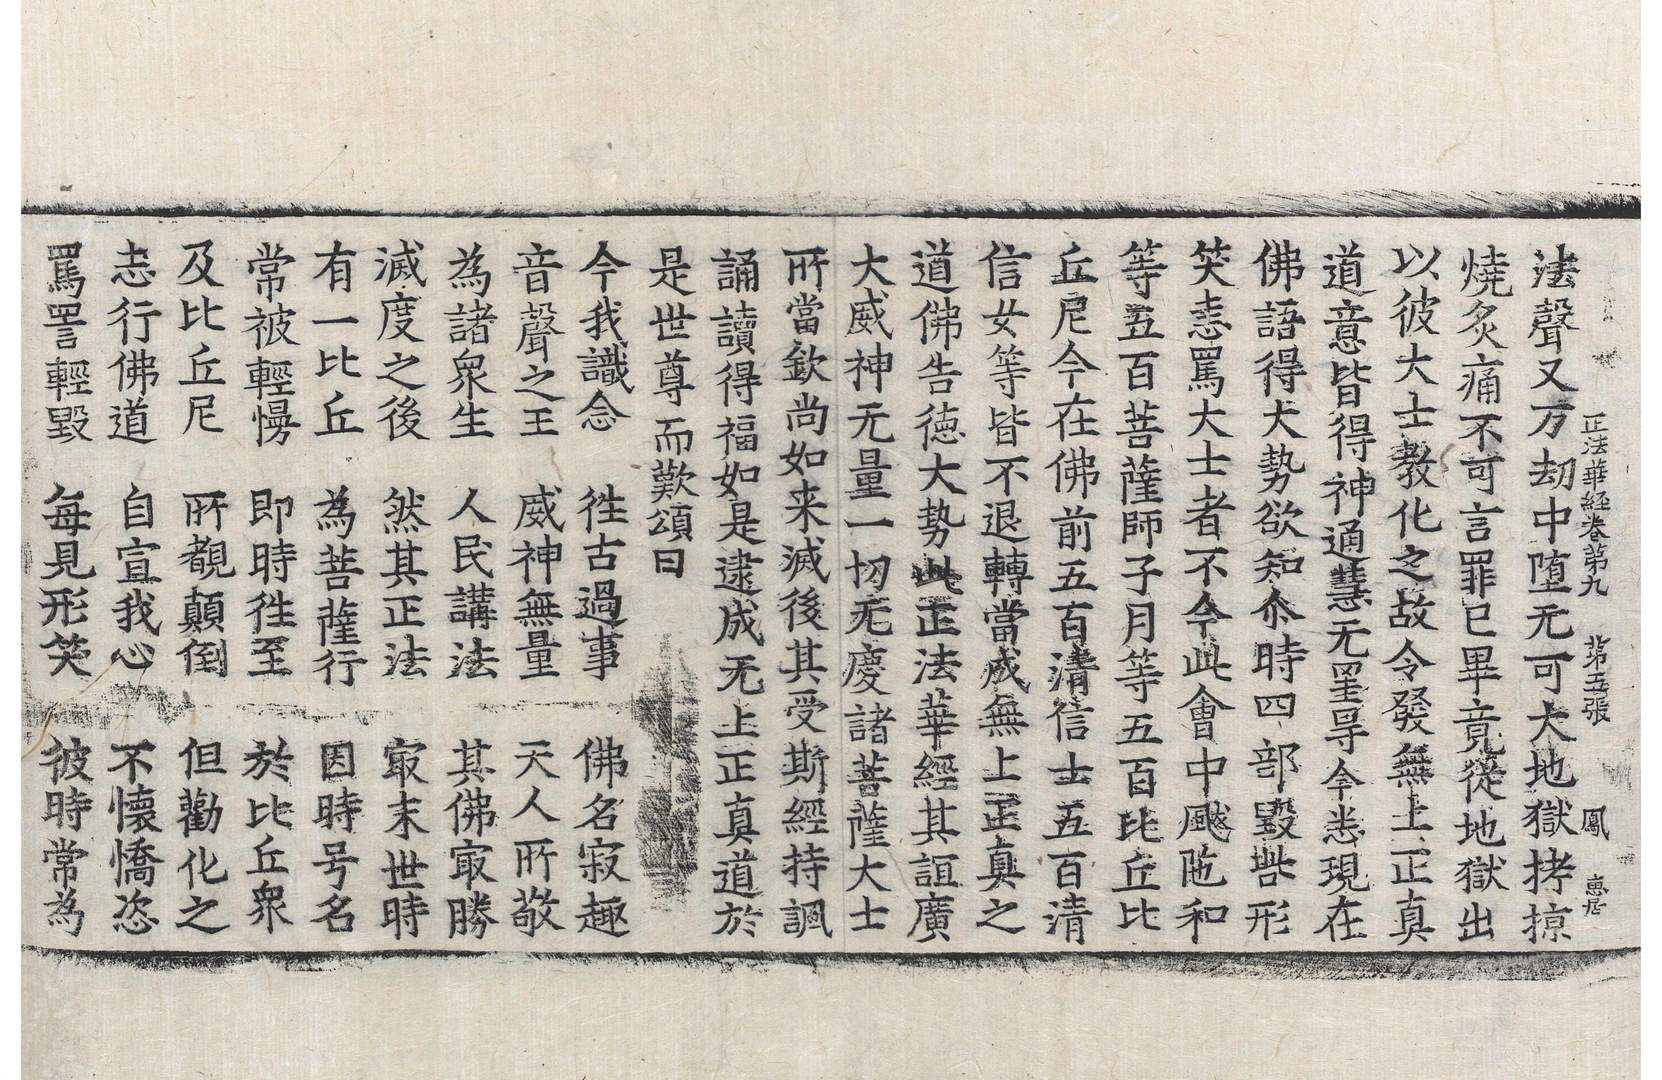 正法華経卷第九 苐五張 鳳 惠居
法聲又万劫中堕无可大地獄拷掠
燒炙痛不可言罪已畢竟從地獄出
以彼大士教化之故令發無上正真
道意皆得神通慧无罣㝵今悉現在
佛語得大勢欲知尒時四部毀呰形
笑恚罵大士者不令此會中颰陁和
等五百菩薩師子月等五百比丘比
丘尼今在佛前五百清信士五百清
信女等皆不退轉當成無上正真之
道佛告徳大勢此正法華經其誼廣
大威神无量一切无慶諸菩薩大士
所當欽尚如来滅後其受斯經持諷
誦讀得福如是逮成无上正真道於
是世尊而歎頌曰
今我識念 徃古過事 佛名寂趣
音聲之王 威神無量 天人所敬
為諸衆生 人民講法 其佛寂勝
滅度之後 然其正法 寂末世時
有一比丘 為菩薩行 因時号名
常被輕慢 即時徃至 於比丘衆
及比丘尼 所覩顛倒 但勸化之
志行佛道 自宣我心 不懷憍恣
罵詈輕毀 每見形笑 彼時常為